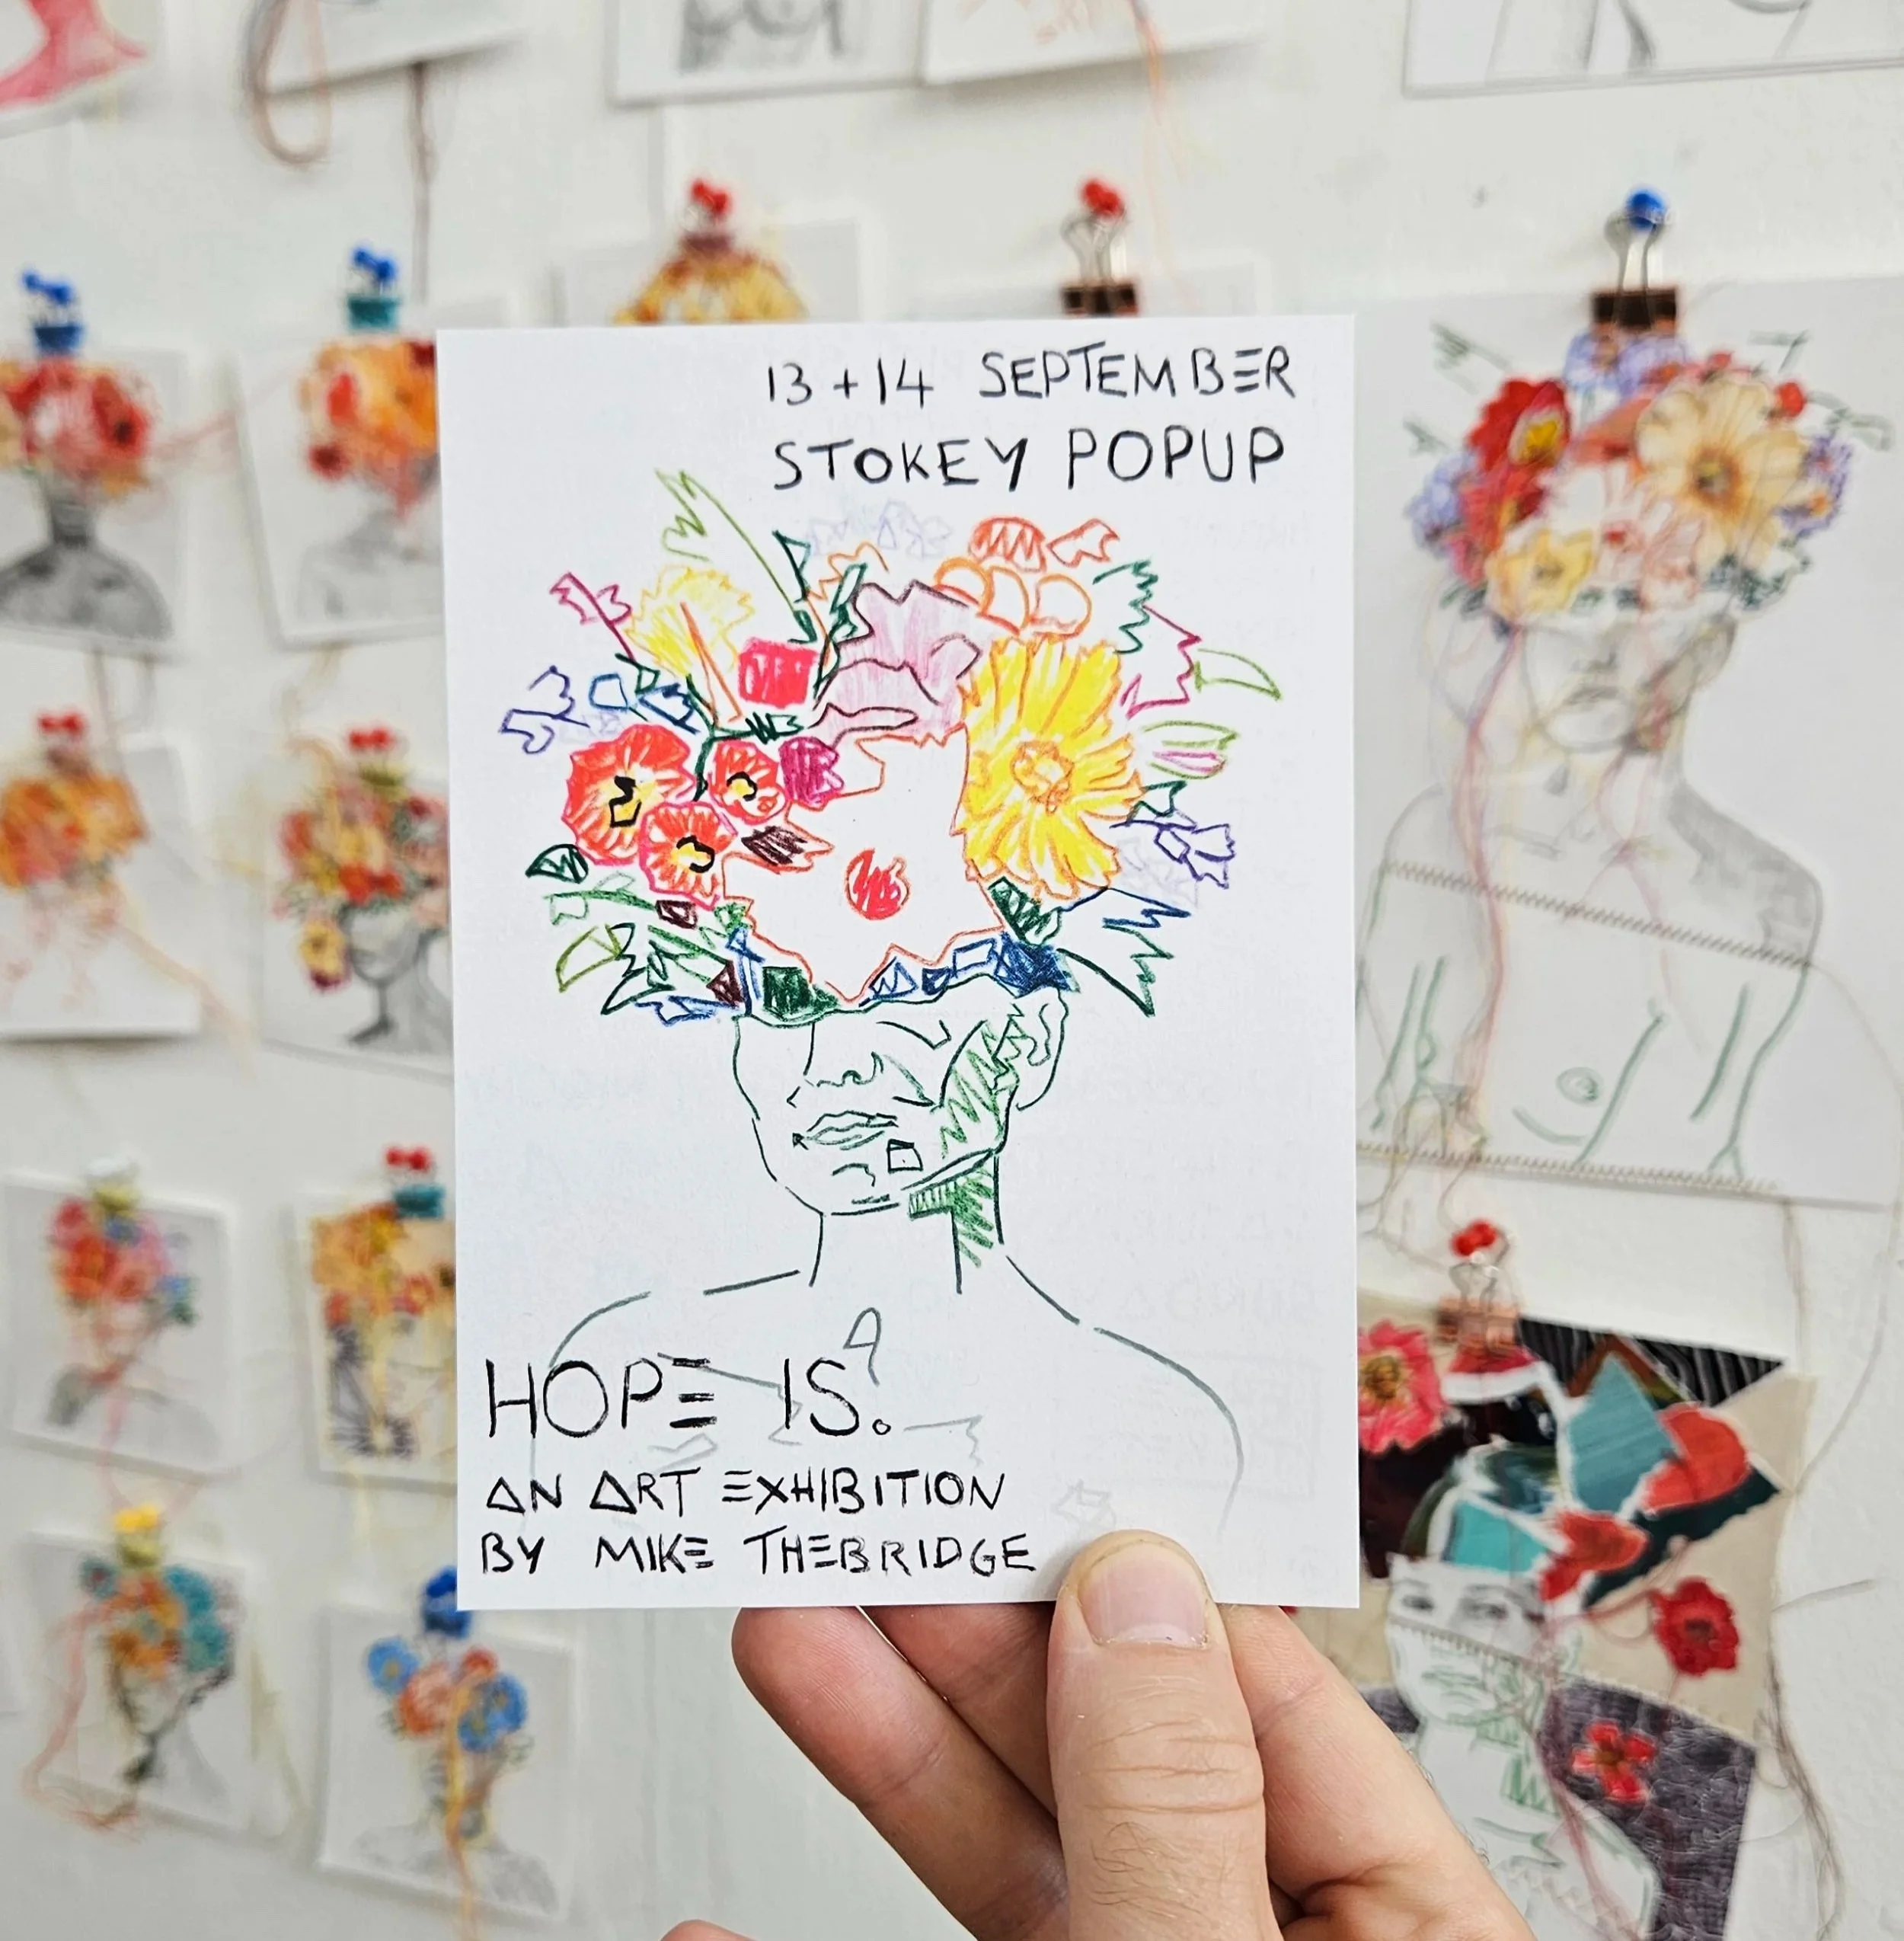 13 + 14 SEPTEMBER
STOKEY POPUP
HOPE IS.
AN ART EXHIBITION
BY MIKE THEBRIDGE